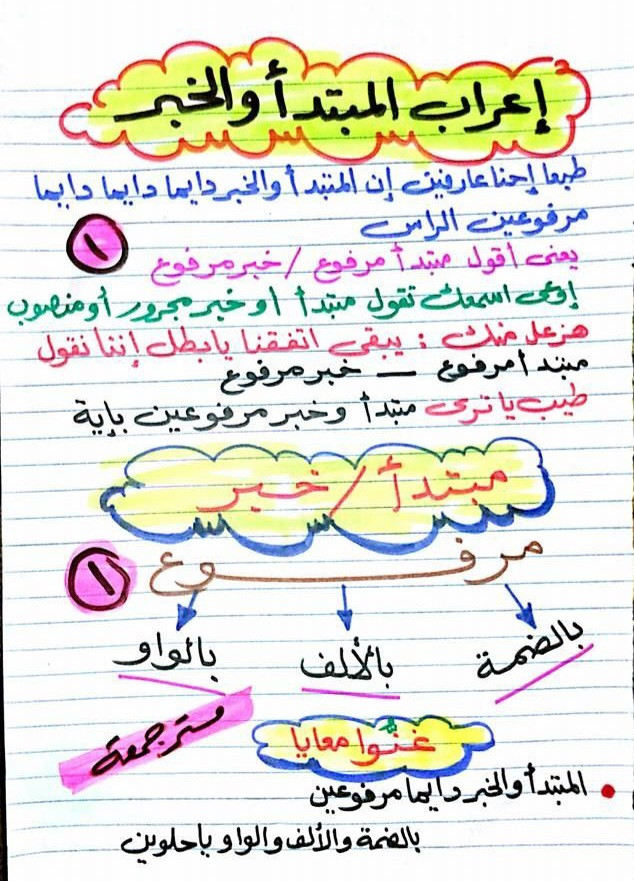 إعراب المبتدأ والخبر
طبعا إحنا عارفين إن المبتدأ والخبر دايما دايما دايما
مرفوعين الراس
١
يعنى أقول مبتدأ مرفوع / خبر مرفوع
إوعى اسمعك تقول مبتدأ او خبر مجرور أو منصوب
هزعل منك : يبقى اتفقنا يابطل إننا نقول
مبتدأ مرفوع — خبر مرفوع
طيب ياترى مبتدأ وخبر مرفوعين بإية
مبتدأ / خبر
مرفوع
١
بالضمة بالألف بالواو
مستر جمعة
غنُّوا معايا
• المبتدأ والخبر دايما مرفوعين
بالضمة والألف والواو ياحلوين